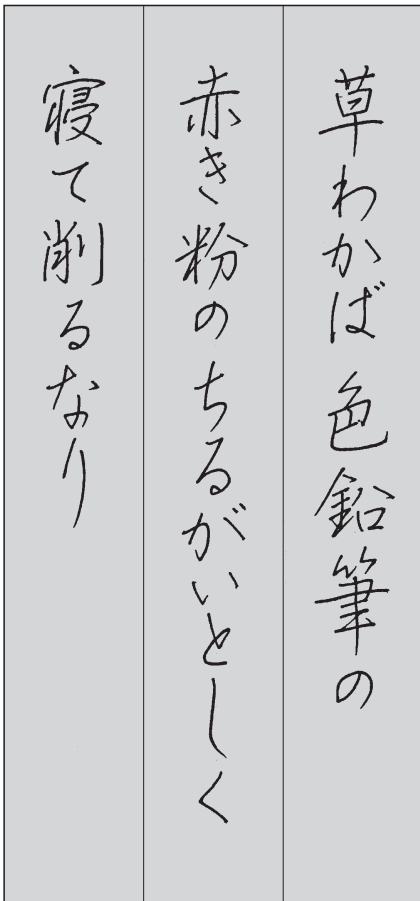 草わかば色鉛筆の
赤き粉のちるがいとしく
寝て削るなり